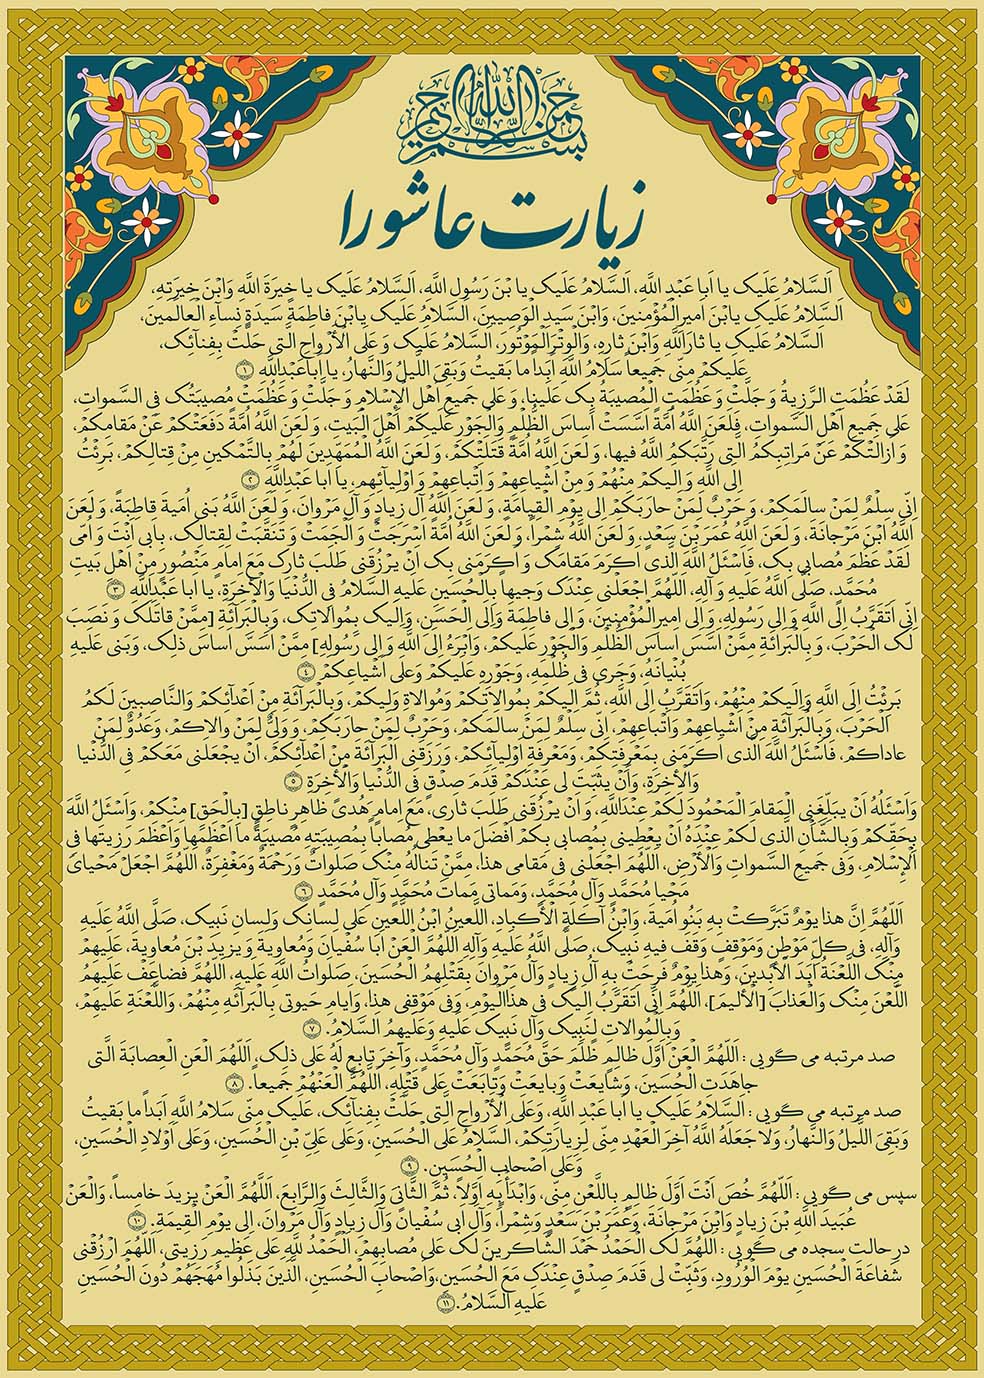 بسم الله الرحمن الرحیم
زیارت عاشورا
اَلسَّلامُ عَلَیْکَ یا اَبا عَبْدِ اللهِ، اَلسَّلامُ عَلَیْکَ یا بْنَ رَسُولِ اللهِ، اَلسَّلامُ عَلَیْکَ یا خِیَرَةَ اللهِ وَابْنَ خِیَرَتِهِ،
اَلسَّلامُ عَلَیْکَ یابْنَ اَمیرِالْمُؤْمِنینَ، وَابْنَ سَیِّدِ الْوَصِیّینَ، اَلسَّلامُ عَلَیْکَ یابْنَ فاطِمَةَ سَیِّدَةِ نِساءِ الْعالَمینَ،
اَلسَّلامُ عَلَیْکَ یا ثارَاللهِ وَابْنَ ثارِهِ، وَالْوِتْرَالْمَوْتُورَ، اَلسَّلامُ عَلَیْکَ وَ عَلَى الْأَرْواحِ الَّتی حَلَّتْ بِفِنائِکَ،
عَلَیْکُمْ مِنّی جَمیعاً سَلامُ اللهِ اَبَداً ما بَقیتُ وَبَقِیَ اللَّیْلُ وَالنَّهارُ، یا اَباعَبْدِاللهِ ۱
لَقَدْ عَظُمَتِ الرَّزِیَّةُ وَ جَلَّتْ وَ عَظُمَتِ الْمُصیبَةُ بِکَ عَلَیْنا، وَ عَلى جَمیعِ اَهْلِ الْاِسْلامِ وَ جَلَّتْ وَ عَظُمَتْ مُصیبَتُکَ فِی السَّمواتِ،
عَلى جَمیعِ اَهْلِ السَّمواتِ، فَلَعَنَ اللهُ اُمَّةً اَسَّسَتْ اَساسَ الظُّلْمِ وَالْجَوْرِ عَلَیْکُمْ اَهْلَ الْبَیْتِ، وَ لَعَنَ اللهُ اُمَّةً دَفَعَتْکُمْ عَنْ مَقامِکُمْ،
وَ اَزالَتْکُمْ عَنْ مَراتِبِکُمُ الَّتی رَتَّبَکُمُ اللهُ فیها، وَ لَعَنَ اللهُ اُمَّةً قَتَلَتْکُمْ، وَ لَعَنَ اللهُ الْمُمَهِّدینَ لَهُمْ بِالتَّمْکینِ مِنْ قِتالِکُمْ، بَرِئْتُ
اِلَى اللهِ وَ اِلَیْکُمْ مِنْهُمْ وَ مِنْ اَشْیاعِهِمْ وَ اَتْباعِهِمْ وَ اَوْلِیائِهِم، یا اَبا عَبْدِاللهِ ۲
اِنّی سِلْمٌ لِمَنْ سالَمَکُمْ، وَ حَرْبٌ لِمَنْ حارَبَکُمْ اِلى یَوْمِ الْقِیامَةِ، وَ لَعَنَ اللهُ آلَ زِیادٍ وَ آلَ مَرْوانَ، وَ لَعَنَ اللهُ بَنی اُمَیَّةَ قاطِبَةً، وَ لَعَنَ
اللهُ ابْنَ مَرْجانَةَ، وَ لَعَنَ اللهُ عُمَرَ بْنَ سَعْدٍ، وَ لَعَنَ اللهُ شِمْراً، وَ لَعَنَ اللهُ اُمَّةً اَسْرَجَتْ وَ اَلْجَمَتْ وَ تَنَقَّبَتْ لِقِتالِکَ، بِاَبی اَنْتَ وَ اُمّی
لَقَدْ عَظُمَ مُصابی بِکَ، فَاَسْئَلُ اللهَ الَّذی اَکْرَمَ مَقامَکَ وَ اَکْرَمَنی بِکَ اَنْ یَرْزُقَنی طَلَبَ ثارِکَ مَعَ اِمامٍ مَنْصُورٍ مِنْ اَهْلِ بَیْتِ
مُحَمَّدٍ، صَلَّى اللهُ عَلَیْهِ وَ آلِهِ، اَللّهُمَّ اجْعَلْنی عِنْدَکَ وَجیهاً بِالْحُسَیْنِ عَلَیْهِ السَّلامُ فِی الدُّنْیا وَالْآخِرَةِ، یا اَبا عَبْدِاللهِ ۳
اِنّی اَتَقَرَّبُ اِلَى اللهِ وَ اِلى رَسُولِهِ، وَ اِلى اَمیرِالْمُؤْمِنینَ، وَ اِلى فاطِمَةَ وَاِلَى الْحَسَنِ، وَاِلَیْکَ بِمُوالاتِکَ، وَبِالْبَرائَةِ [مِمَّنْ قاتَلَکَ وَ نَصَبَ
لَکَ الْحَرْبَ، وَ بِالْبَرائَةِ مِمَّنْ اَسَّسَ اَساسَ الظُّلْمِ وَالْجَوْرِ عَلَیْکُمْ، وَ اَبْرَءُ اِلَى اللهِ وَ اِلى رَسُولِهِ] مِمَّنْ اَسَّسَ اَساسَ ذلِکَ، وَبَنى عَلَیْهِ
بُنْیانَهُ، وَجَرى فی ظُلْمِهِ، وَجَوْرِهِ عَلَیْکُمْ وَعَلى اَشْیاعِکُمْ ۴
بَرِئْتُ اِلَى اللهِ وَاِلَیْکُمْ مِنْهُمْ، وَاَتَقَرَّبُ اِلَى اللهِ، ثُمَّ اِلَیْکُمْ بِمُوالاتِکُمْ وَمُوالاةِ وَلِیِّکُمْ، وَبِالْبَرائَةِ مِنْ اَعْدائِکُمْ وَالنّاصِبینَ لَکُمُ
الْحَرْبَ، وَبِالْبَرائَةِ مِنْ اَشْیاعِهِمْ وَاَتْباعِهِمْ، اِنّی سِلْمٌ لِمَنْ سالَمَکُمْ، وَحَرْبٌ لِمَنْ حارَبَکُمْ، وَ وَلِیٌّ لِمَنْ والاکُمْ، وَعَدُوٌّ لِمَنْ
عاداکُمْ، فَاَسْئَلُ اللهَ الَّذی اَکْرَمَنی بِمَعْرِفَتِکُمْ، وَمَعْرِفَةِ اَوْلِیائِکُمْ، وَرَزَقَنِی الْبَرائَةَ مِنْ اَعْدائِکُمْ، اَنْ یَجْعَلَنی مَعَکُمْ فِی الدُّنْیا
وَالْآخِرَةِ، وَاَنْ یُثَبِّتَ لی عِنْدَکُمْ قَدَمَ صِدْقٍ فِی الدُّنْیا وَالْآخِرَةِ ۵
وَاَسْئَلُهُ اَنْ یُبَلِّغَنِی الْمَقامَ الْمَحْمُودَ لَکُمْ عِنْدَاللهِ، وَ اَنْ یَرْزُقَنی طَلَبَ ثاری، مَعَ اِمامٍ هُدىً ظاهِرٍ ناطِقٍ [بِالْحَقِّ] مِنْکُمْ، وَاَسْئَلُ اللهَ
بِحَقِّکُمْ وَبِالشَّأْنِ الَّذی لَکُمْ عِنْدَهُ اَنْ یُعْطِیَنی بِمُصابی بِکُمْ اَفْضَلَ ما یُعْطی مُصاباً بِمُصیبَتِهِ مُصیبَةً ما اَعْظَمَها وَاَعْظَمَ رَزِیَّتَها فِی
الْاِسْلامِ، وَفی جَمیعِ السَّمواتِ وَالْأَرْضِ، اَللّهُمَّ اجْعَلْنی فی مَقامی هذا، مِمَّنْ تَنالُهُ مِنْکَ صَلَواتٌ وَرَحْمَةٌ وَمَغْفِرَةٌ، اَللّهُمَّ اجْعَلْ مَحْیایَ
مَحْیا مُحَمَّدٍ وَآلِ مُحَمَّدٍ، وَمَماتی مَماتَ مُحَمَّدٍ وَآلِ مُحَمَّدٍ ۶
اَللّهُمَّ اِنَّ هذا یَوْمٌ تَبَرَّکَتْ بِهِ بَنُو اُمَیَّةَ، وَابْنُ آکِلَةِ الْأَکْبادِ، اللَّعینُ ابْنُ اللَّعینِ عَلى لِسانِکَ وَلِسانِ نَبِیِّکَ، صَلَّى اللهُ عَلَیْهِ
وَآلِهِ، فی کُلِّ مَوْطِنٍ وَمَوْقِفٍ وَقَفَ فیهِ نَبِیُّکَ، صَلَّى اللهُ عَلَیْهِ وَآلِهِ اَللّهُمَّ الْعَنْ اَبا سُفْیانَ وَمُعاوِیَةَ وَ یَزیدَ بْنَ مُعاوِیَةَ، عَلَیْهِمْ
مِنْکَ اللَّعْنَةُ اَبَدَ الْآبِدینَ، وَهذا یَوْمٌ فَرِحَتْ بِهِ آلُ زِیادٍ وَآلُ مَرْوانَ بِقَتْلِهِمُ الْحُسَیْنَ، صَلَواتُ اللهِ عَلَیْهِ، اَللّهُمَّ فَضاعِفْ عَلَیْهِمُ
اللَّعْنَ مِنْکَ وَالْعَذابَ [الْأَلیمَ]، اَللّهُمَّ اِنّی اَتَقَرَّبُ اِلَیْکَ فی هذَاالْیَوْمِ، وَفی مَوْقِفی هذا، وَاَیّامِ حَیوتی بِالْبَرائَةِ مِنْهُمْ، وَاللَّعْنَةِ عَلَیْهِمْ،
وَبِالْمُوالاتِ لِنَبِیِّکَ وَآلِ نَبِیِّکَ عَلَیْهِ وَعَلَیْهِمُ السَّلامُ. ۷
صد مرتبه می گویی : اَللّهُمَّ الْعَنْ اَوَّلَ ظالِمٍ ظَلَمَ حَقَّ مُحَمَّدٍ وَآلِ مُحَمَّدٍ، وَآخِرَ تابِعٍ لَهُ عَلى ذلِکَ، اَللّهُمَّ الْعَنِ الْعِصابَةَ الَّتی
جاهَدَتِ الْحُسَیْنَ، وَشایَعَتْ وَبایَعَتْ وَتابَعَتْ عَلى قَتْلِهِ، اَللّهُمَّ الْعَنْهُمْ جَمیعاً. ۸
صد مرتبه می گویی : اَلسَّلامُ عَلَیْکَ یا اَبا عَبْدِ اللهِ، وَعَلَى الْأَرْواحِ الَّتی حَلَّتْ بِفِنائِکَ، عَلَیْکَ مِنّی سَلامُ اللهِ اَبَداً ما بَقیتُ
وَبَقِیَ اللَّیْلُ وَالنَّهارُ، وَلا جَعَلَهُ اللهُ آخِرَ الْعَهْدِ مِنّی لِزِیارَتِکُمْ، اَلسَّلامُ عَلَى الْحُسَیْنِ، وَعَلى عَلِیِّ بْنِ الْحُسَیْنِ، وَعَلى اَوْلادِ الْحُسَیْنِ،
وَعَلى اَصْحابِ الْحُسَیْنِ. ۹
سپس می گویی : اَللّهُمَّ خُصَّ اَنْتَ اَوَّلَ ظالِمٍ بِاللَّعْنِ مِنّی، وَابْدَأْ بِهِ اَوَّلاً، ثُمَّ الثّانِیَ وَالثّالِثَ وَالرّابِعَ، اَللّهُمَّ الْعَنْ یَزیدَ خامِساً، وَالْعَنْ
عُبَیْدَ اللهِ بْنَ زِیادٍ وَابْنَ مَرْجانَةَ، وَعُمَرَ بْنَ سَعْدٍ وَشِمْراً، وَآلَ اَبی سُفْیانَ وَآلَ زِیادٍ وَآلَ مَرْوانَ، اِلى یَوْمِ الْقِیمَةِ. ۱۰
در حالت سجده می گویی : اَللّهُمَّ لَکَ الْحَمْدُ حَمْدَ الشّاکِرینَ لَکَ عَلى مُصابِهِمْ، اَلْحَمْدُ لِلّهِ عَلى عَظیمِ رَزِیَّتی، اَللّهُمَّ ارْزُقْنی
شَفاعَةَ الْحُسَیْنِ یَوْمَ الْوُرُودِ، وَثَبِّتْ لی قَدَمَ صِدْقٍ عِنْدَکَ مَعَ الْحُسَیْنِ، وَاَصْحابِ الْحُسَیْنِ، الَّذینَ بَذَلُوا مُهَجَهُمْ دُونَ الْحُسَیْنِ
عَلَیْهِ السَّلامُ. ۱۱